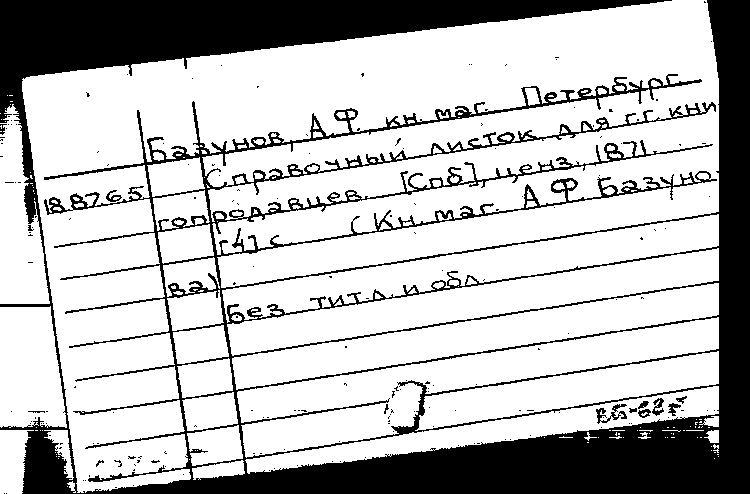 Базунов, А.Ф., кн. маг. Петербург.
18.87.6.5 Справочный листок для г.г. кни
гопродавцев. [Спб], ценз., 1871.
[4] с (Кн. маг. А.Ф. Базуно
ва)
Без тит.л. и обл.